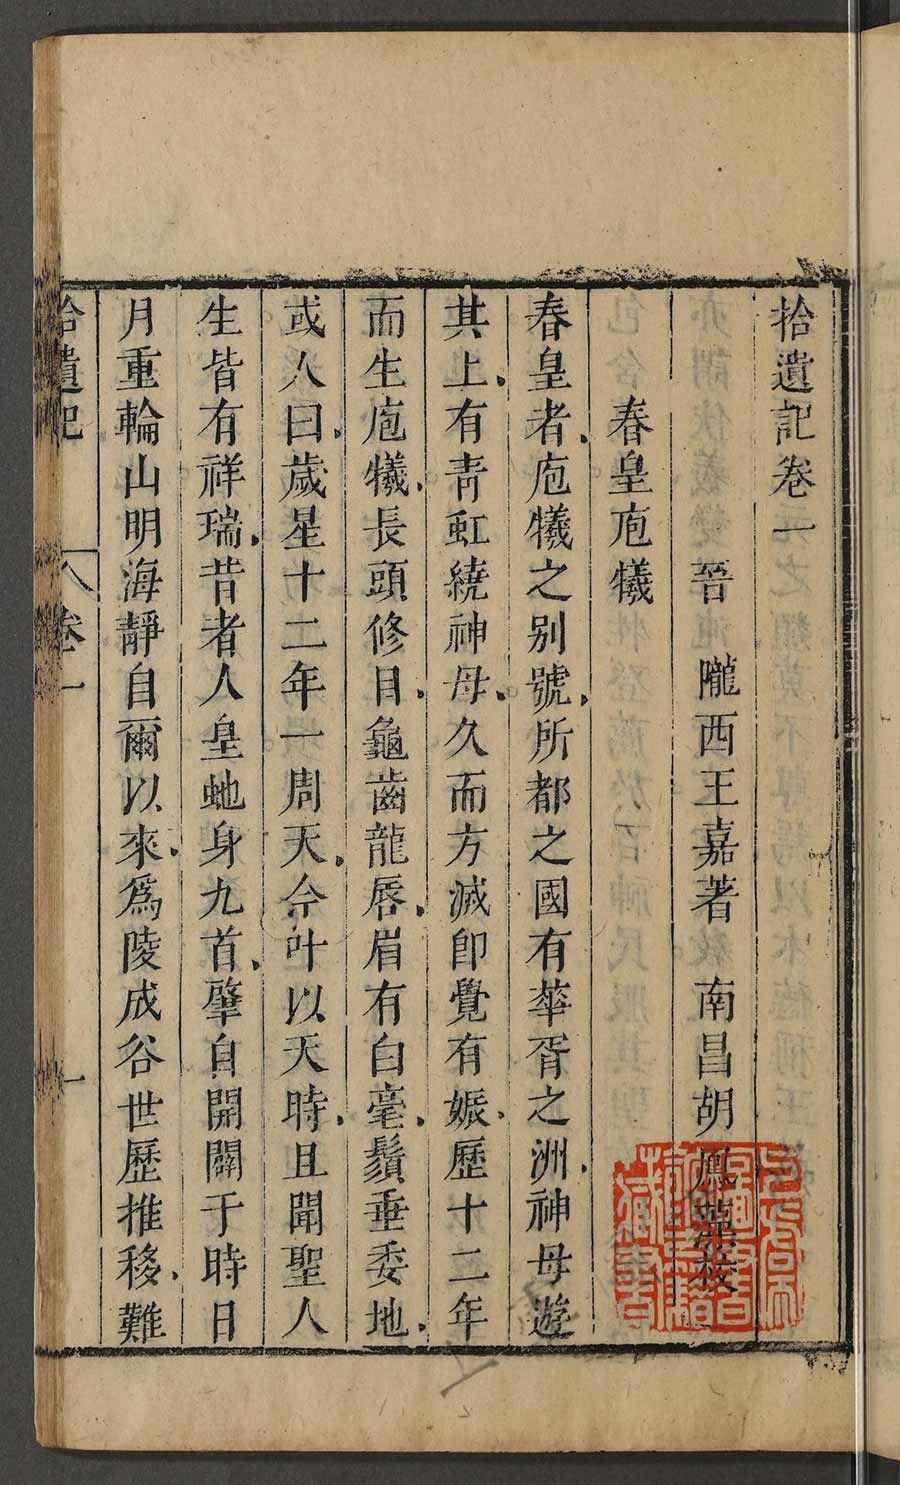 拾遺記卷一
晉　隴西王嘉著　南昌胡鳳　校
春皇庖犧
春皇者庖犧之別號所都之國有華胥之洲神母遊
其上有青虹繞神母久而方滅卽覺有娠歷十二年
而生庖犧長頭修目龜齒龍唇眉有白毫鬚垂委地
或人曰歲星十二年一周天今叶以天時且聞聖人
生皆有祥瑞昔者人皇虵身九首肇自開闢于時日
月重輪山明海靜自爾以來爲陵成谷世歷推移難
拾遺記　卷一　一